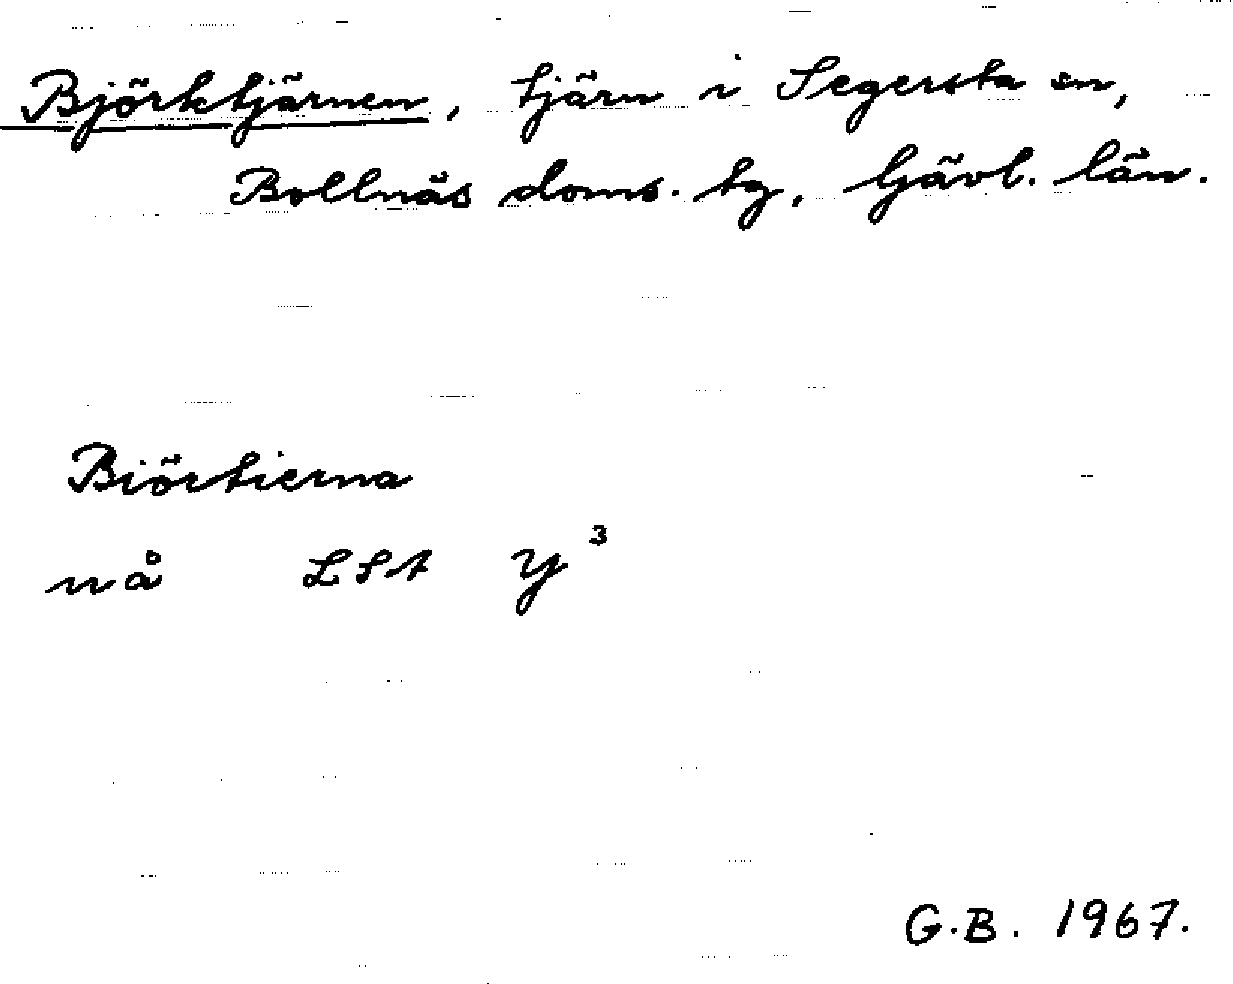 Björktjärnen, tjärn i Segersta sn,
Bollnäs doms. tg, Gävl. län.
Biörtierna
nå LSA Y³
G.B. 1967.